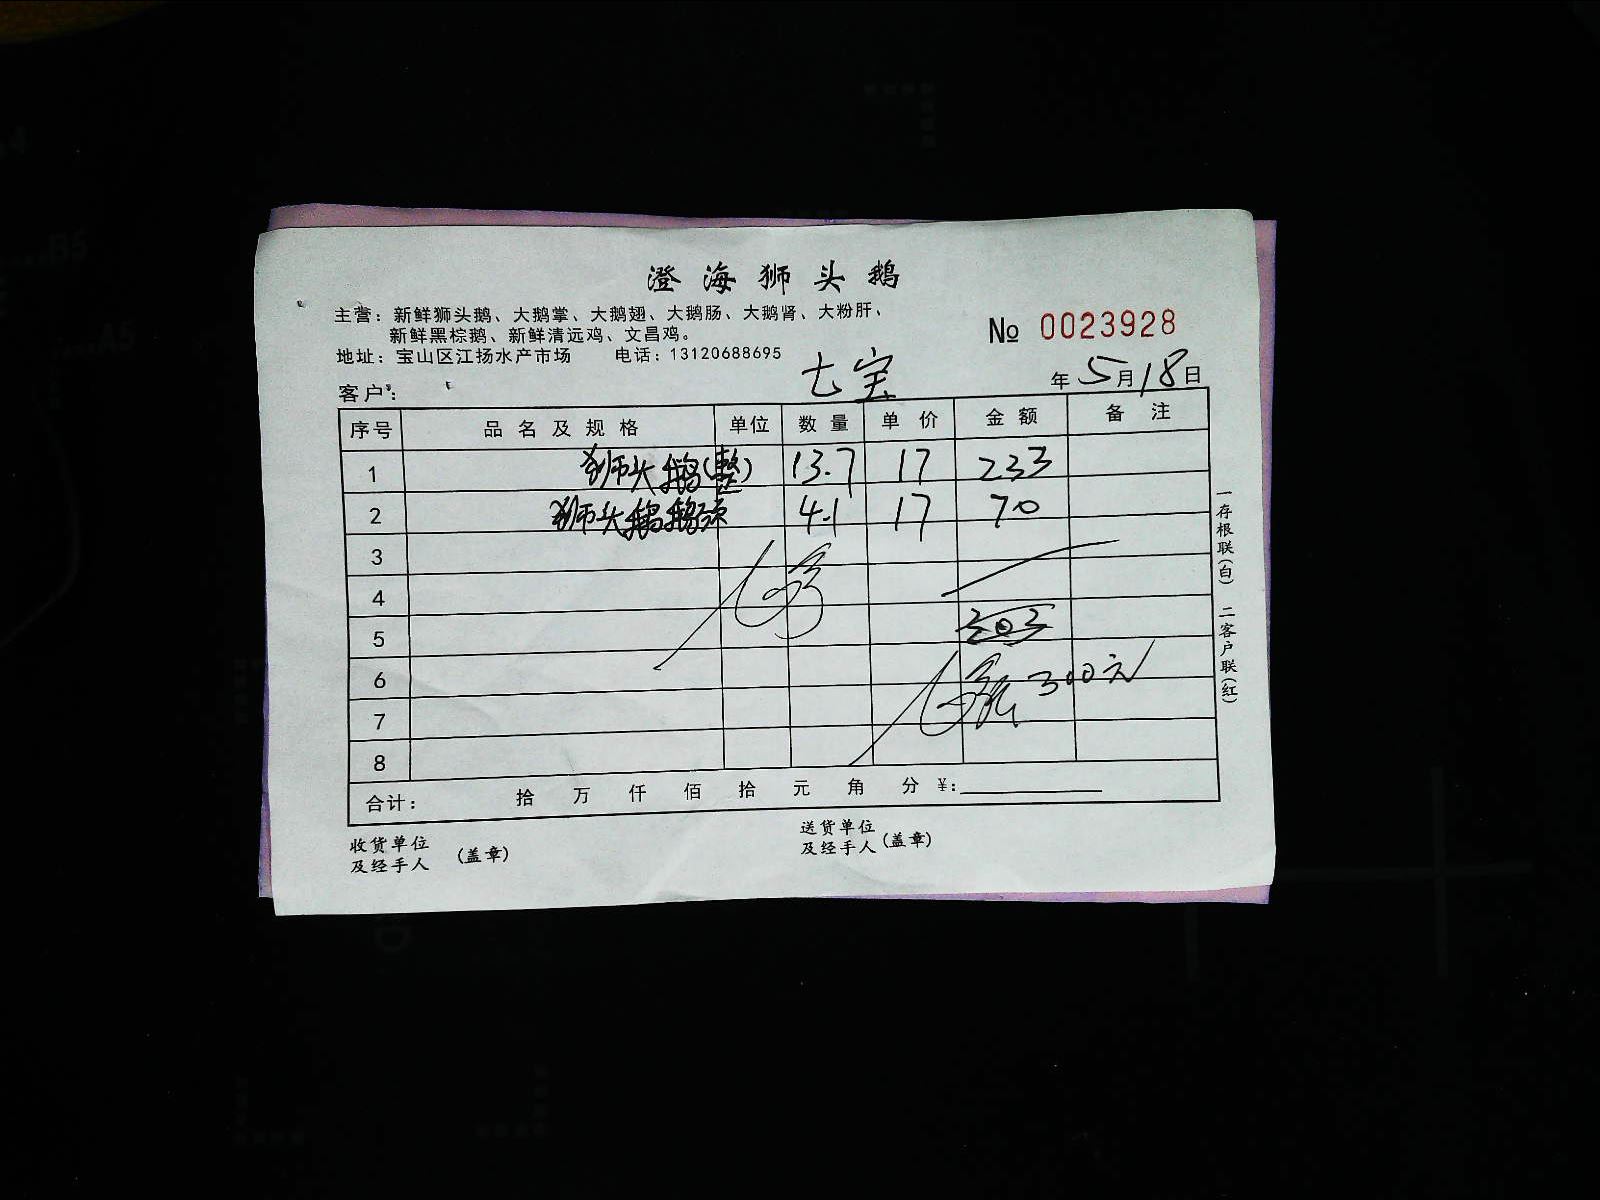 澄海狮头鹅
主营：新鲜狮头鹅、大鹅掌、大鹅翅、大鹅肠、大鹅肾、大粉肝、
新鲜黑棕鹅、新鲜清远鸡、文昌鸡。
№ 0023928
地址：宝山区江扬水产市场 电话：13120688695
客户： 七宝 年 5月18日
序号 品名及规格 单位 数量 单价 金额 备注
1 狮头鹅(整) 13.7 17 233
2 狮头鹅鹅头 4.1 17 70
3
4
5 303
6 300元
7
8
合计： 拾 万 仟 佰 拾 元 角 分 ¥：
收货单位
及经手人 (盖章)
送货单位
及经手人 (盖章)
一存根联(白) 二客户联(红)
B5
A5